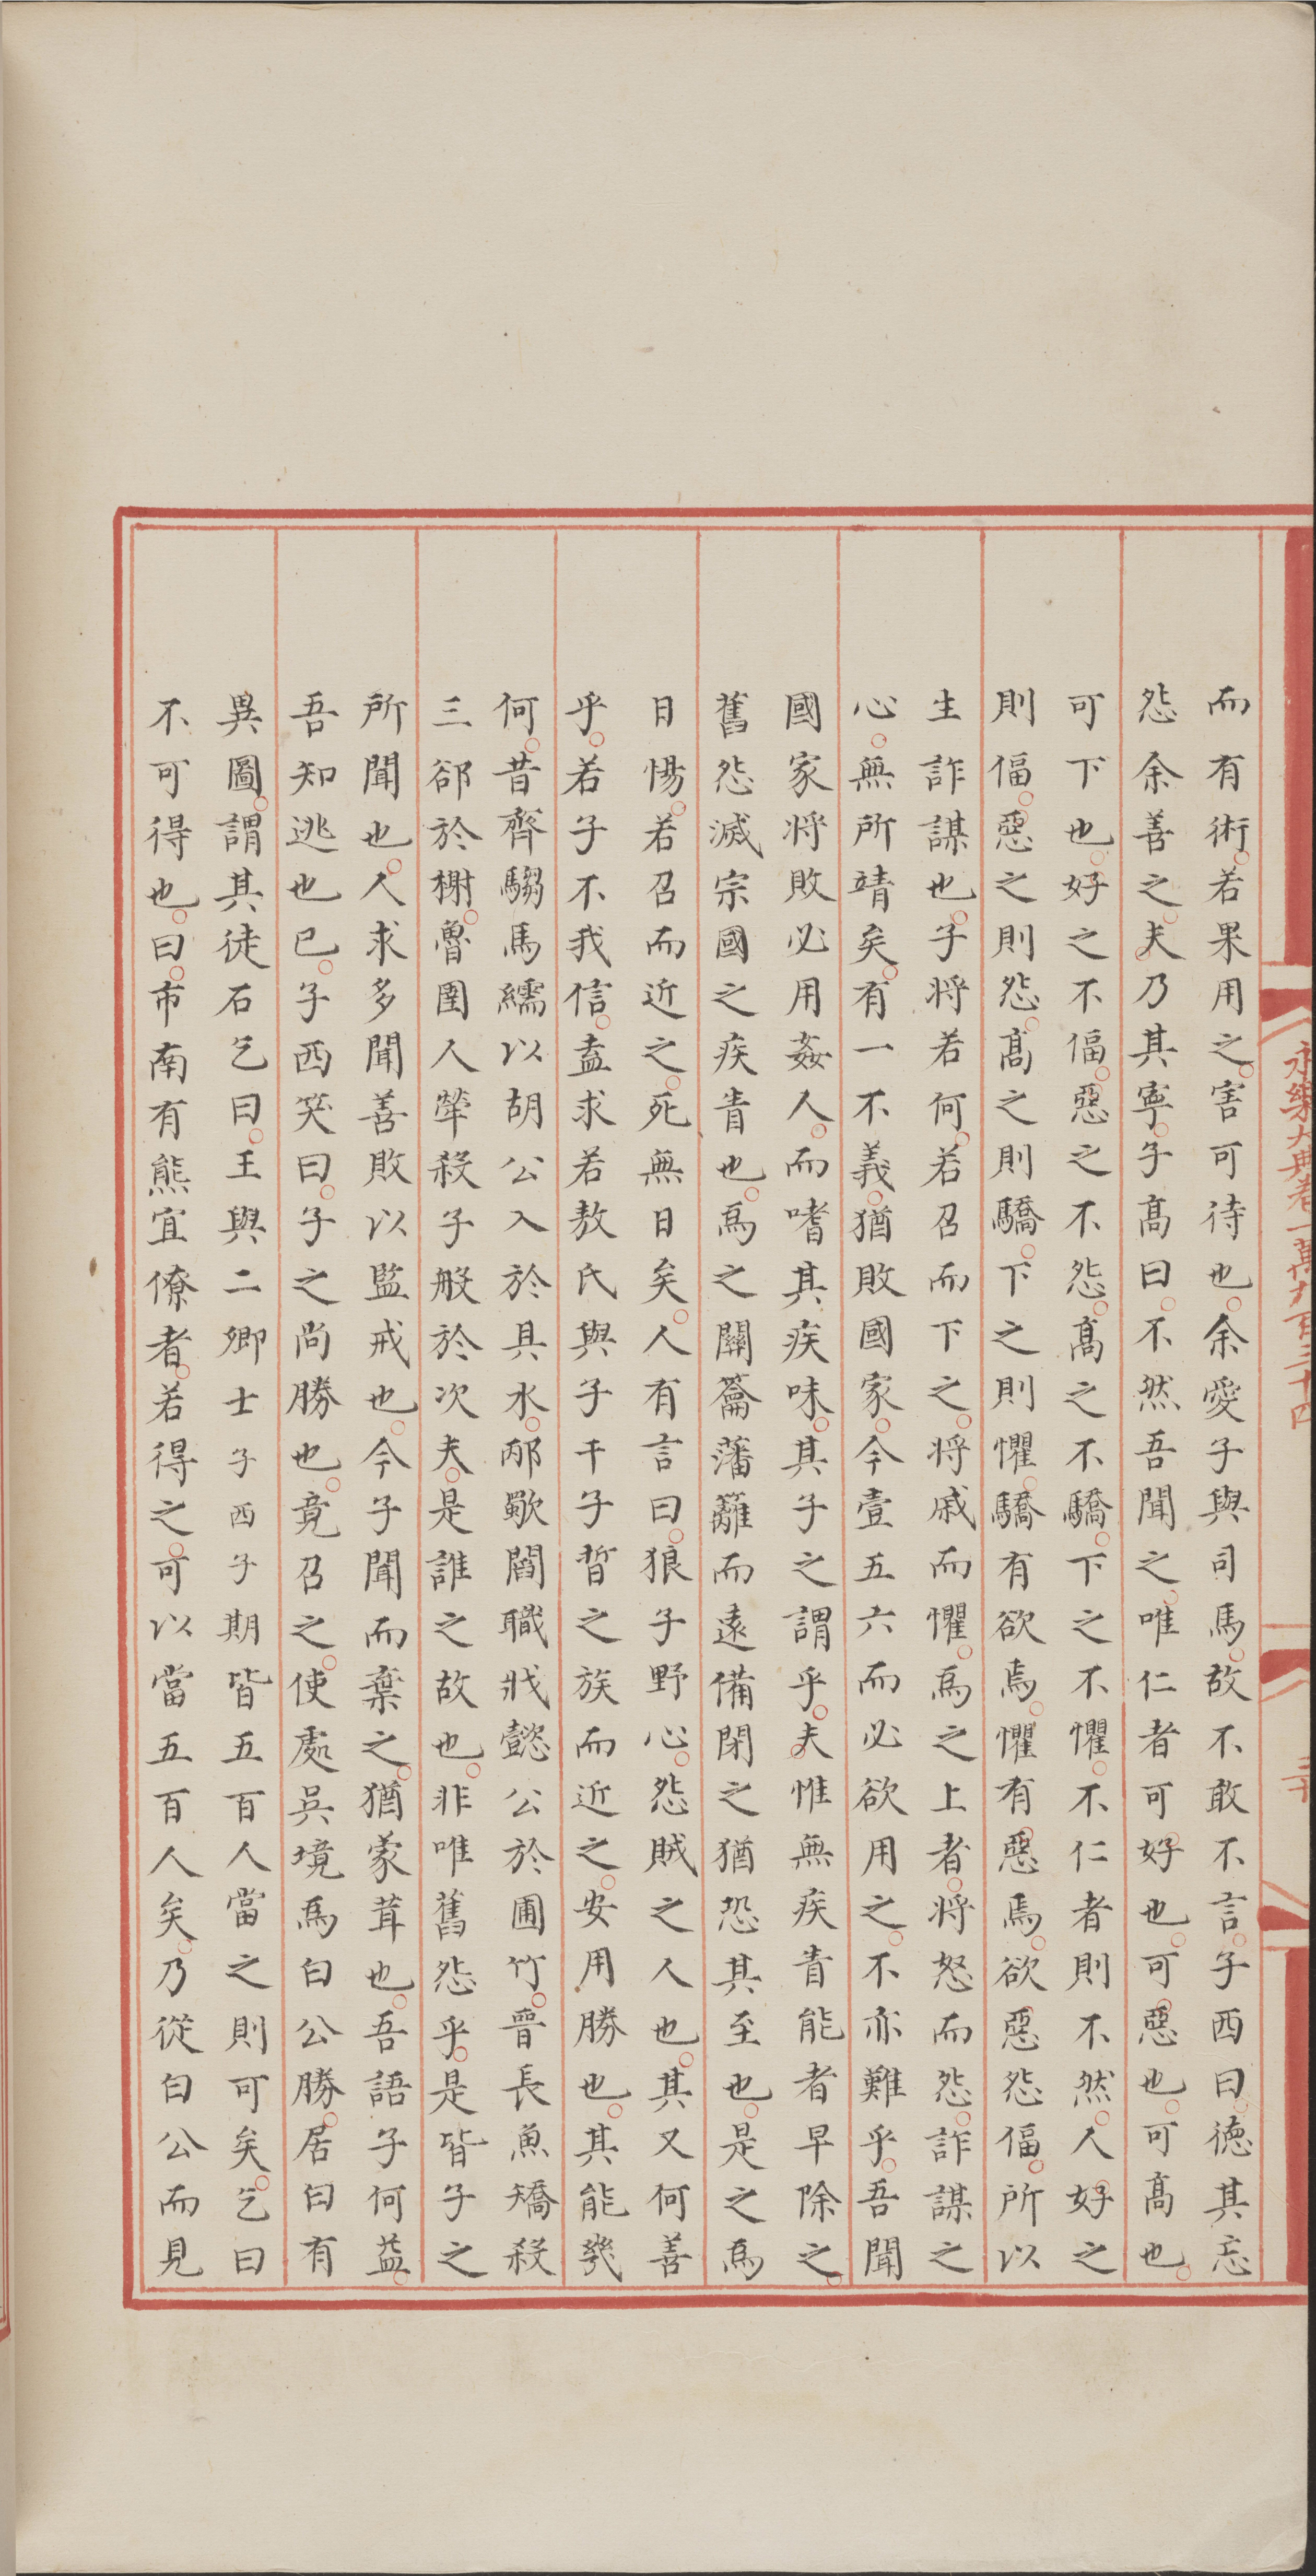 永樂大典卷一萬九百三十四
二十
而有術若果用之害可待也余愛子與司馬故不敢不言子西曰德其忘
怨余善之夫乃其寧子髙曰不然吾聞之唯仁者可好也可惡也可髙也
可下也好之不偪惡之不怨髙之不驕下之不懼不仁者則不然人好之
則偪惡之則怨髙之則驕下之則懼驕有欲焉懼有惡焉欲惡怨偪所以
生詐謀也子将若何若召而下之将戚而懼爲之上者将怒而怨詐謀之
心無所靖矣有一不義猶敗國家今壹五六而必欲用之不亦難乎吾聞
國家将敗必用姦人而嗜其疾味其子之謂乎夫惟無疾眚能者早除之
舊怨滅宗國之疾眚也爲之關籥藩籬而遠備閉之猶恐其至也是之爲
日惕若召而近之死無日矣人有言曰狼子野心怨賊之人也其又何善
乎若子不我信盍求若敖氏與子干子晳之族而近之安用勝也其能幾
何昔齊騶馬繻以胡公入於具水邴歜閻職戕懿公於囿竹晉長魚矯殺
三郤於榭魯圉人犖殺子般於次夫是誰之故也非唯舊怨乎是皆子之
所聞也人求多聞善敗以監戒也今子聞而棄之猶蒙茸也吾語子何益
吾知逃也已子西笑曰子之尚勝也竟召之使處吳境爲白公勝居曰有
異圖謂其徒石乞曰王與二卿士子西子期皆五百人當之則可矣乞曰
不可得也曰市南有熊宜僚者若得之可以當五百人矣乃從白公而見